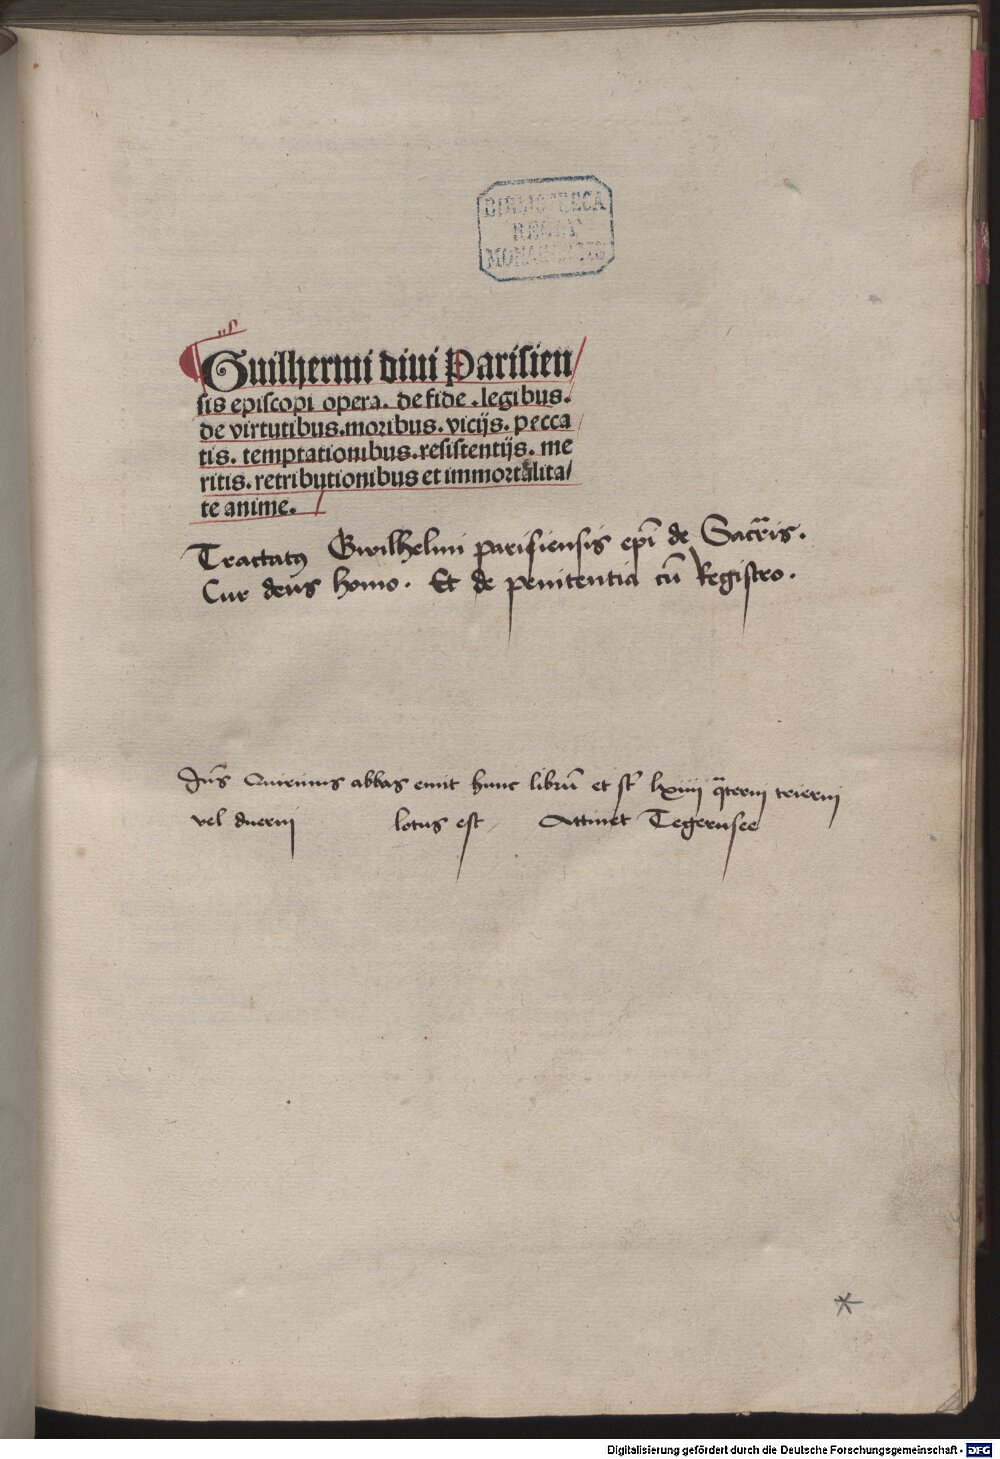 BIBLIOTHECA
REGIA
MONACENSIS
Guilhermi diui Parisien
sis episcopi opera. de fide .legibus.
de virtutibus.moribus. vicijs. pecca
tis. temptationibus.resistentijs. me
ritis. retributionibus et immortalita
te anime.
Tractatꝰ Gwilhelmi parisiensis ep̄i de Sacr̄is.
Cur deus homo. Et de penitentia cū Registro.
Quirinus abbas emit hunc librū et st̄ lxiiii q̄terni trierni
vel duerni lotus est Attinet Tegernsee
Digitalisierung gefördert durch die Deutsche Forschungsgemeinschaft - DFG